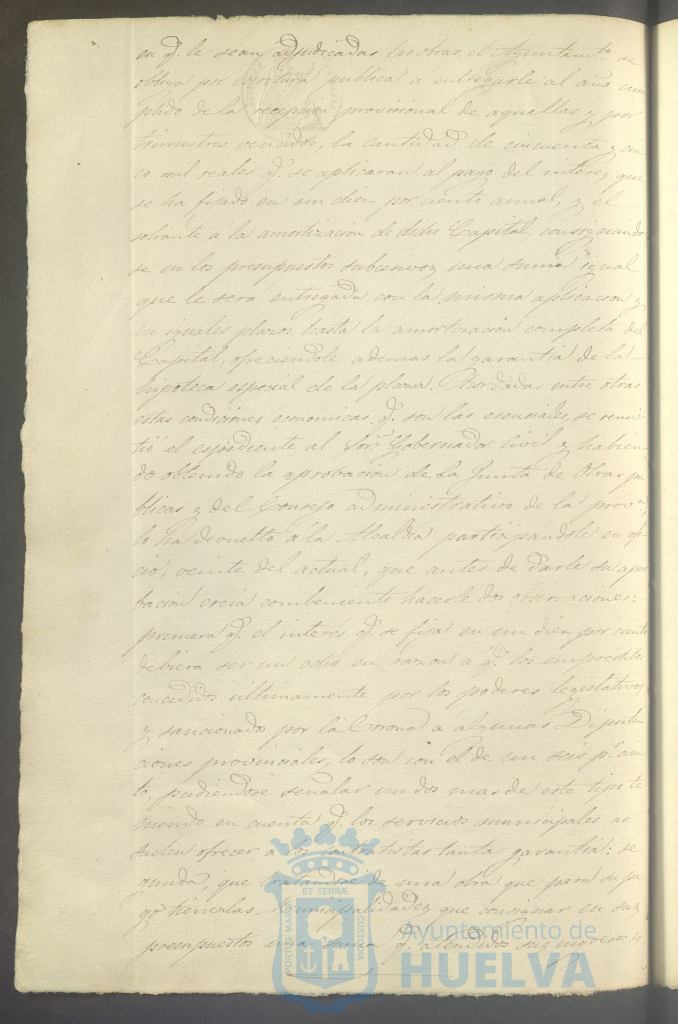 en q.e le sean adjudicadas las obras, el Ayuntam.to se
obliga por escritura publica a entregarle al año cum
plido de la recepcion provisional de aquellas y por
trimestres vencidos, la cantidad de cincuenta y cin
co mil reales q.e se aplicaran al pago del interes que
se ha fijado en un diez por ciento anual, y el
sobrante a la amortizacion de dicho Capital, consignando
se en los presupuestos subcesivos una suma igual
que le será entregada con la misma aplicacion y
en iguales plazos hasta la amortizacion completa del
Capital, ofreciendole ademas la garantia de la
hipoteca especial de la plaza. Acordadas entre otras
estas condiciones economicas q.e son las esenciales, se remi
tió el espediente al Sor. Gobernador Civil y habien
do obtenido la aprobacion de la Junta de Obras pu
blicas y del Consejo administrativo de la prov.a,
lo ha devuelto á la Alcaldia participandole en ofi
cio, veinte del actual, que antes de darle su apro
bacion creia combeniente hacerle dos observaciones:
primera q.e el interés q.e se fija en un diez por ciento
debiera ser un ocho en razon a q.e los emprestitos
concedidos últimamente por los poderes legislativos
y sancionados por la Corona a algunas Diputa
ciones provinciales, lo son con el de un seis p.r cien
to, pudiendose señalar un dos mas de este tipo te
niendo en cuenta q.e los servicios municipales no
suelen ofrecer a los contratistas tanta garantia: se
gunda, que tratandose de una obra que para su pa
go tienen las Municipalidades que consignar en sus
presupuestos una suma q.e atendidos sus ingresos es
PORTUS MARIS
ET TERRÆ
CUSTODIA
Ayuntamiento de
HUELVA